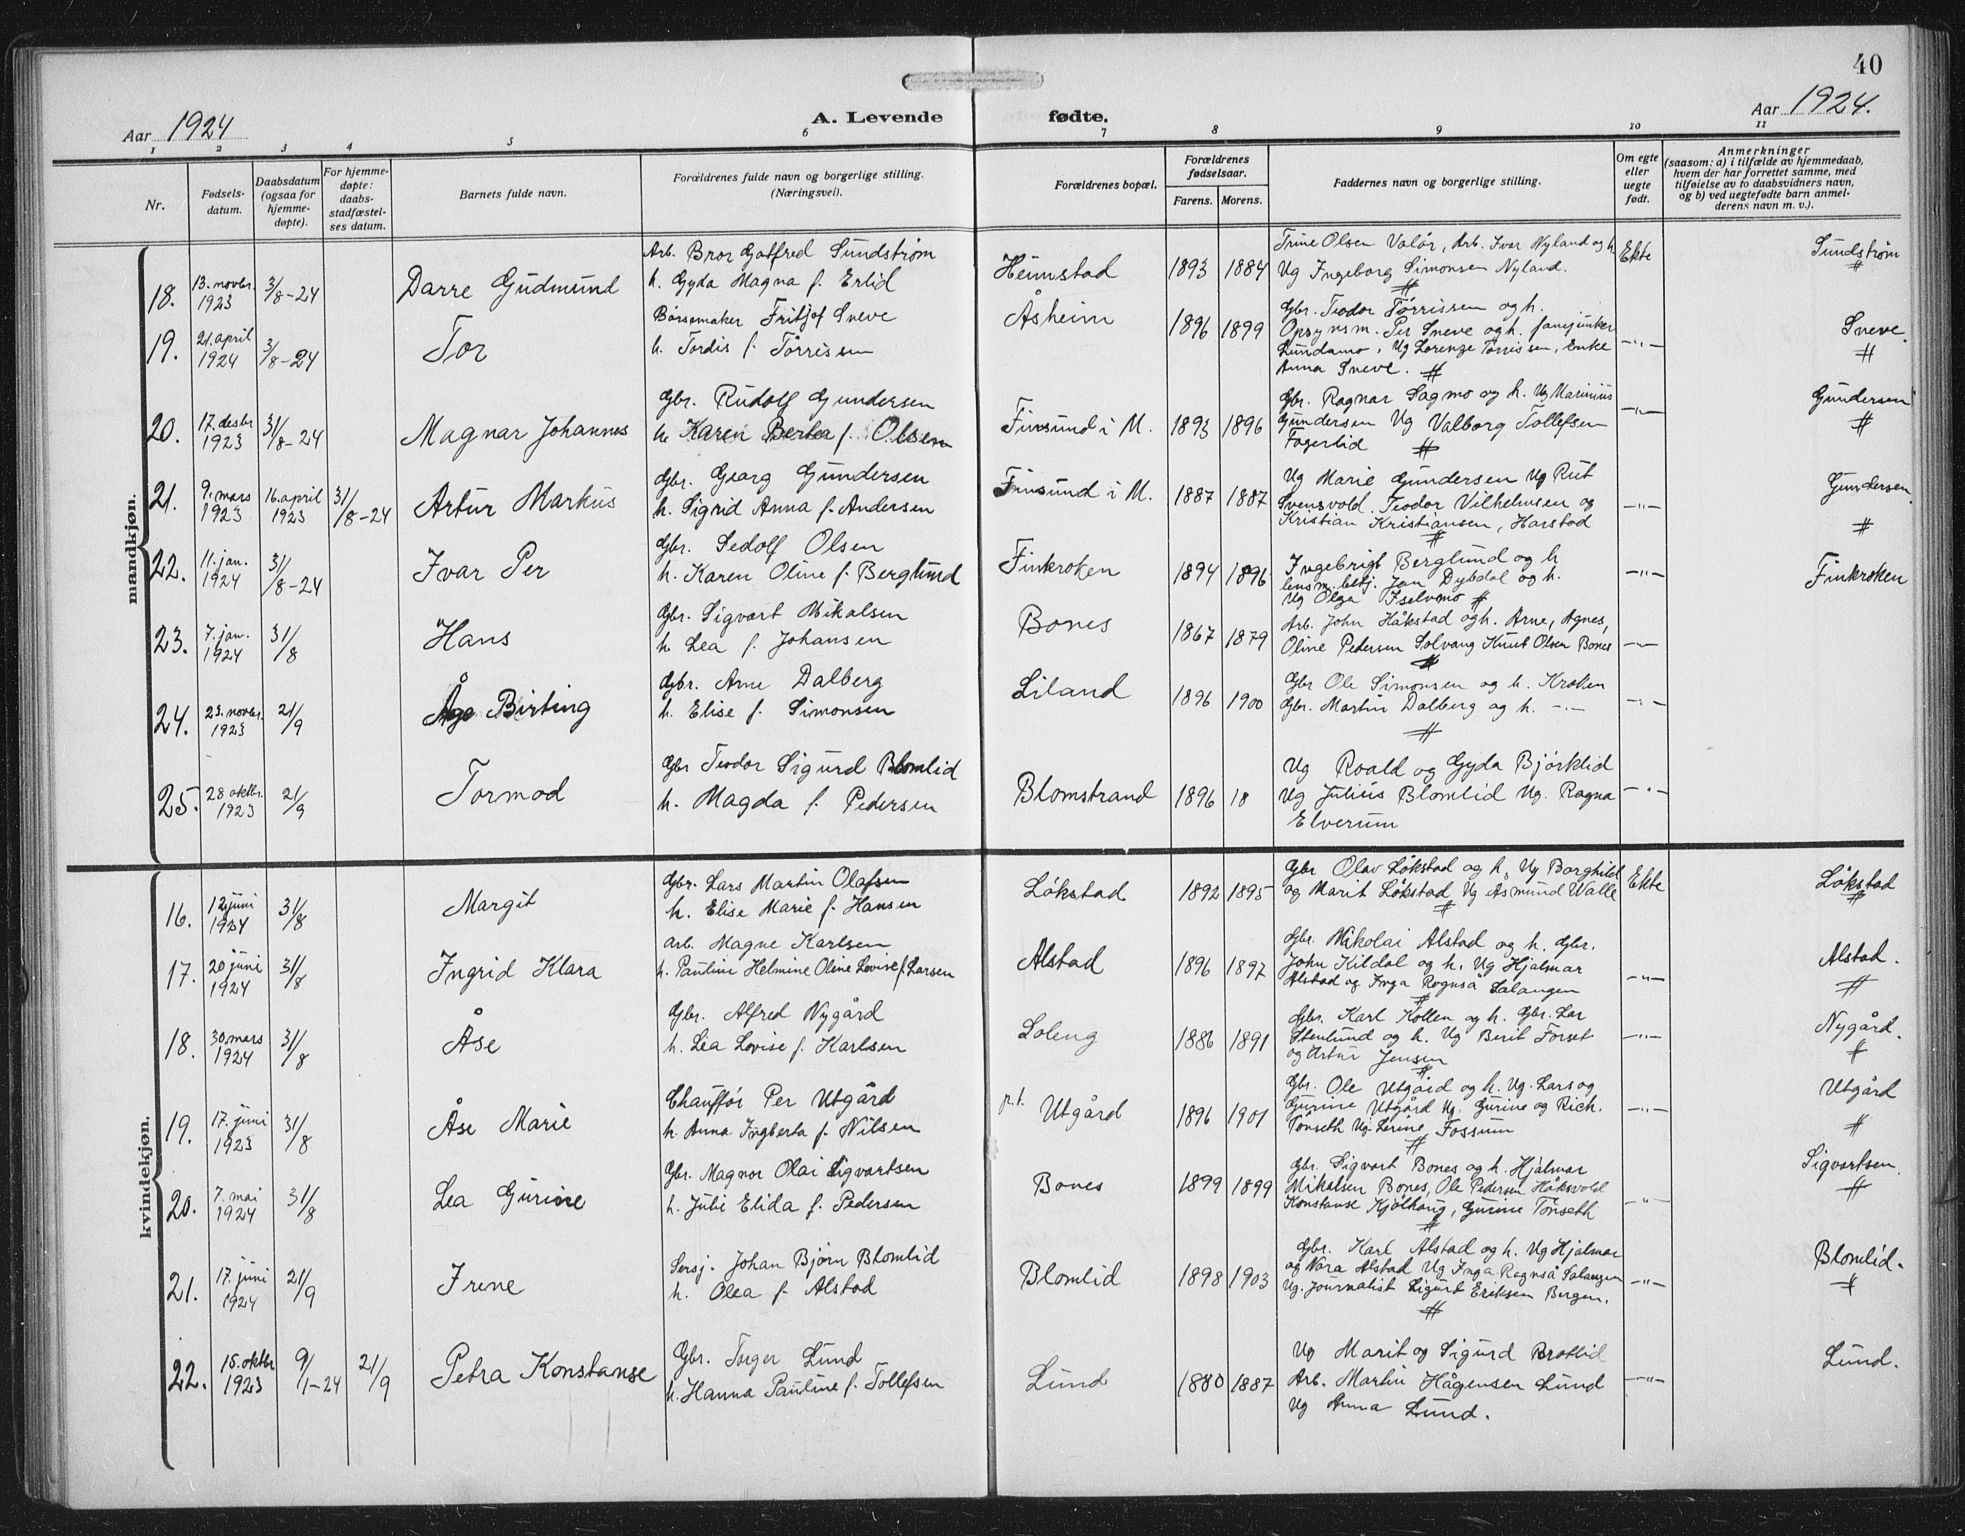 40
Aar 1924
A. Levende fødte.
Aar 1924.
1 2 3 4 5 6 7 8 9 10 11
Nr.
Fødsels-
datum.
Daabsdatum
(ogsaa for
hjemme-
døpte).
For hjemme-
døpte:
daabs-
stadfæstel-
ses datum.
Barnets fulde navn.
Forældrenes fulde navn og borgerlige stilling.
(Næringsvei).
Forældrenes bopæl.
Forældrenes
fødselsaar.
Farens. Morens.
Faddernes navn og borgerlige stilling.
Om egte
eller
uegte
født.
Anmerkninger
(saasom: a) i tilfælde av hjemmedaab,
hvem der har forrettet samme, med
tilføielse av to daabsvidners navn,
og b) ved uegtefødte barn anmel-
derens navn m. v.).
mandkjøn.
18.
13. novbr.
1923
3/8-24
Darre Gudmund
Arb. Bror Gotfred Sundstrøm
h. Gyda Magna f. Erlid
Heimstad
1893 1884
Trine Olsen Valør, Arb. Ivar Nyland og h.
Ug Ingeborg Simonsen Nyland.
Ekte
Sundstrøm
19.
21. april
1924
3/8-24
Tor
Børsemaker Fritjof Sneve
h. Tordis f. Tørrissen
Åsheim
1896 1899
Gbr. Teodor Tørrissen og h.
Opsynsm. Per Sneve og h. fanejunker
Lundamo, Ug Lorenze Tørrissen, Enke
Anna Sneve.
-"-
Sneve.
20.
17. desbr
1923
31/8-24
Magnar Johannes
Gbr. Rudolf Gundersen
h. Karen Bertea f. Olsen
Finsund i M.
1893 1896
Gbr. Ragnar Sagmo og h. Ug Marinius
Gundersen Ug Valborg Tollefsen
Fagerlid
-"-
Gundersen
21.
9. mars
1923
16. april
1923
31/8-24
Artur Markus
Gbr. Georg Gundersen
h. Sigrid Anna f. Andersen
Finsund i M.
1887 1887
Ug Marie Gundersen Ug Rut
Svensvold. Teodor Vilhelmsen og
Kristian Kristiansen, Harstad
-"-
Gundersen.
22.
11. jan.
1924
31/8-24
Ivar Per
Gbr. Sedolf Olsen
h. Karen Oline f. Berglund
Finkroken
1894 1896
Ingebrigt Berglund og h
lensm.betj. Jan Dybdal og h.
Ug Olga Iselvmo
-"-
Finkroken
23.
7. jan.
1924
31/8
Hans
Gbr. Sigvart Mikalsen
h. Lea f. Johansen
Bones
1867 1879
Arb. John Håkstad og h. Arne, Agnes,
Oline Pedersen Solvang Knut Olsen Bones
-"-
24.
23. novbr.
1923
21/9
Åge Birting
Gbr. Arne Dalberg
h. Elise f. Simonsen
Liland
1896 1900
Gbr Ole Simonsen og h. Kroken
Gbr. Martin Dalberg og h. -"-
-"-
25.
28 oktbr.
1923
21/9
Tormod
Gbr Teodor Sigurd Blomlid
h. Magda f. Pedersen
Blomstrand
1896 18
Ug Roald og Gyda Bjørklid
Ug Julius Blomlid Ug. Ragna
Elverum
-"-
kvindekjøn.
16.
12 juni
1924
31/8
Margit
Gbr. Lars Martin Olafsen
h. Elise Marie f. Hansen
Løkstad
1892 1895
Gbr Olav Løkstad og h, Ug Borghild
og Marit Løkstad Ug Asmund Walle
Ekte
Løkstad
17.
20 juni
1924
31/8
Ingrid Klara
arb. Magne Karlsen
h. Pauline Helmine Oline Lovise f. Larsen
Alstad
1896 1897
Gbr. Nikolai Alstad og h. Gbr.
John Kildal og h. Ug Hjalmar
Alstad og Inga Ragnså Salangen
-"-
Alstad.
18.
30 mars
1924
31/8
Åse
Gbr. Alfred Nygård
h. Lea Lovise f. Karlsen
Soleng
1886 1891
Gbr. Karl Kollen og h. Gbr. Lar
Stenlund og h. Ug Berit Forset
og Artur Jensen
-"-
Nygård.
19.
17. juni
1923
31/8
Åse Marie
Chauffør Per Utgård
h. Anna Ingberta f. Nilsen
p.t. Utgård
1896 1901
Gbr. Ole Utgård og h. Ug. Lars og
Gurine Utgård Ug. Gurine og Rich.
Tønseth Ug. Lerine Fossum
-"-
Utgård
20.
7. mai
1924
31/8
Lea Gurine
Gbr. Magnor Olai Sigvartsen
h. Julie Elida f. Pedersen
Bones
1899 1899
Gbr. Sigvart Bones og h. Hjalmar
Mikalsen Bones, Ole Pedersen Håksvold
Konstanse Kjølhaug, Gurine Tønseth
-"-
Sigvartsen.
21.
17. juni
1924
21/9
Irene
Sersj. Johan Bjørn Blomlid
h. Olea f. Alstad
Blomlid
1898 1903
Gbr. Karl Alstad og h. Ug Hjalmar
og Nora Alstad Ug Inga Ragnså Salangen
Ug. Journalist Sigurd Eriksen Bergen.
-"-
Blomlid.
22.
15. oktbr
1923
9/1-24
21/9
Petra Konstanse
Gbr. Torger Lund
h. Hanna Pauline f. Tollefsen
Lund
1880 1887
Ug Marit og Sigurd Brattlid
Arb. Martin Hågensen Lund
Ug Anna Lund.
-"-
Lund.